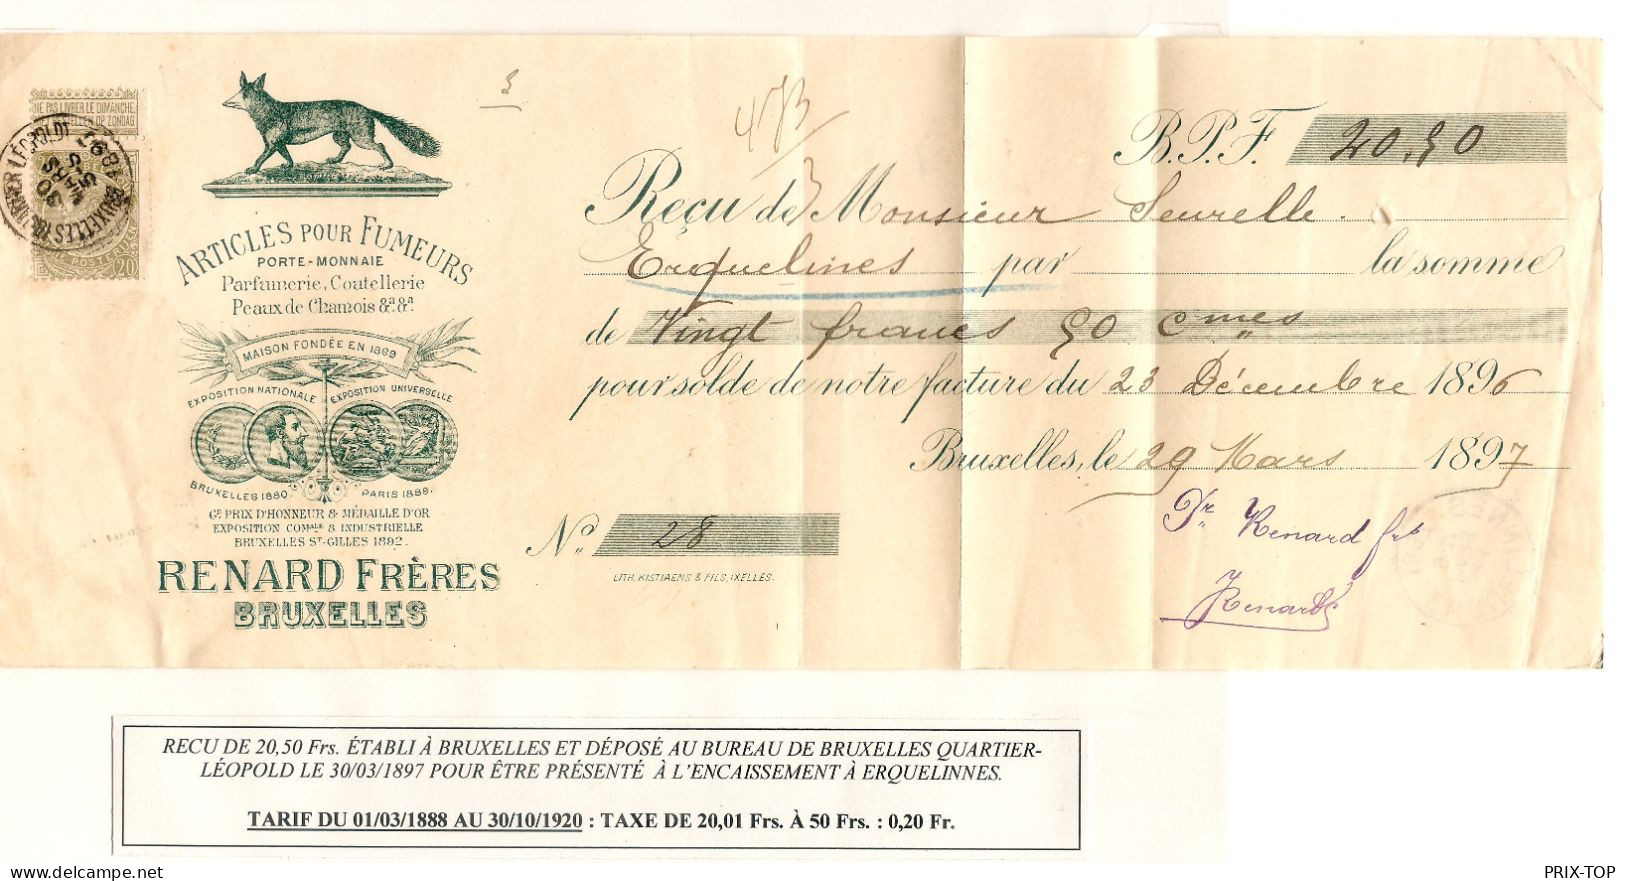 NE PAS LIVRER LE DIMANCHE
NIET BESTELLEN OP ZONDAG
LÉOPOLD
BRUXELLES
30
MARS
5-S
1897
20
ARTICLES POUR FUMEURS
PORTE-MONNAIE
Parfumerie, Coutellerie
Peaux de Chamois &ª.&ª.
MAISON FONDÉE EN 1869
EXPOSITION NATIONALE EXPOSITION UNIVERSELLE
BRUXELLES 1880. PARIS 1889.
Gᴰ PRIX D'HONNEUR & MÉDAILLE D'OR
EXPOSITION COMᴬᴸᴱ & INDUSTRIELLE
BRUXELLES Sᵀ-GILLES 1892.
RENARD FRÈRES
BRUXELLES
3
473
B.P.F. 20.50
Reçu de Monsieur Seurelle.
Erquelines par la somme
de Vingt francs 50 cmes
pour solde de notre facture du 23 Décembre 1896
Bruxelles, le 29 Mars 1897
Nº. 28
Pr Renard frs
Renard
LITH. KISTIAENS & FILS, IXELLES.
RECU DE 20,50 Frs. ÉTABLI À BRUXELLES ET DÉPOSÉ AU BUREAU DE BRUXELLES QUARTIER-
LÉOPOLD LE 30/03/1897 POUR ÊTRE PRÉSENTÉ À L'ENCAISSEMENT À ERQUELINNES.
TARIF DU 01/03/1888 AU 30/10/1920 : TAXE DE 20,01 Frs. À 50 Frs. : 0,20 Fr.
PRIX-TOP